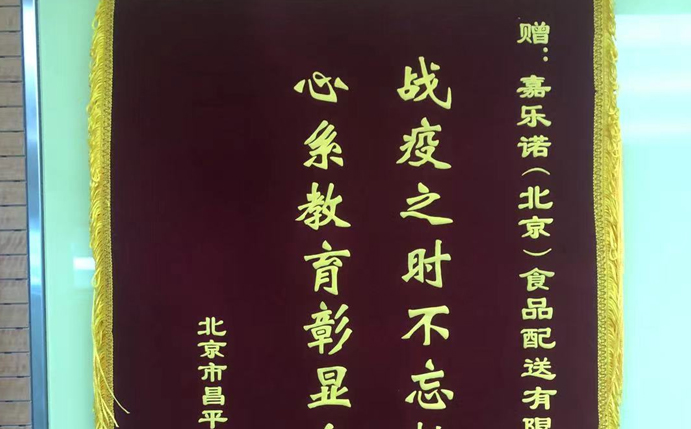 赠：嘉乐诺（北京）食品配送有限
战疫之时不忘
心系教育彰显
北京市昌平